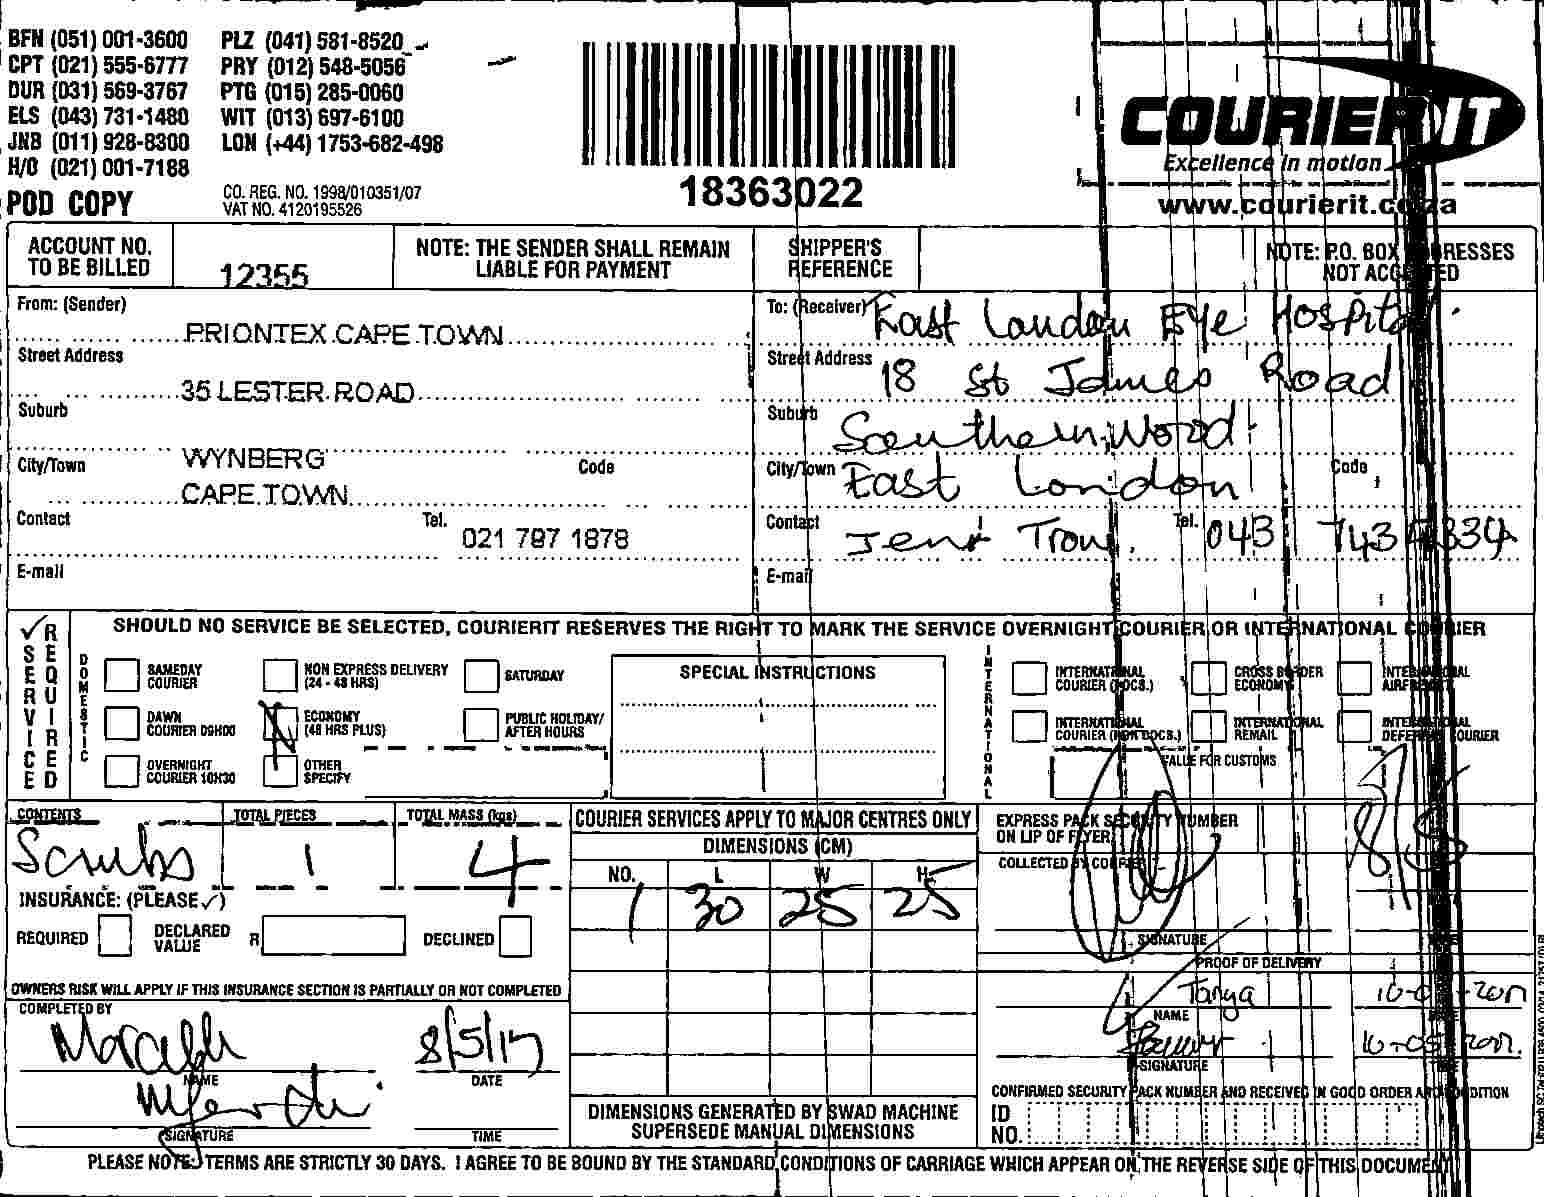 BFN (051) 001-3600 PLZ (041) 581-8520
CPT (021) 555-6777 PRY (012) 548-5056
DUR (031) 569-3767 PTG (015) 285-0060
ELS (043) 731-1480 WIT (013) 697-6100
JNB (011) 928-8300 LON (+44) 1753-682-498
H/O (021) 001-7188
POD COPY
CO. REG. NO. 1998/010351/07
VAT NO. 4120195526
18363022
COURIER IT
Excellence in motion
www.courierit.co.za
ACCOUNT NO. TO BE BILLED 12355
NOTE: THE SENDER SHALL REMAIN LIABLE FOR PAYMENT
SHIPPER'S REFERENCE
NOTE: P.O. BOX ADDRESSES NOT ACCEPTED
From: (Sender) PRIONTEX CAPE TOWN
Street Address 35 LESTER ROAD
Suburb WYNBERG
City/Town CAPE TOWN Code
Contact Tel. 021 797 1878
E-mail
To: (Receiver) East London Eye Hospital.
Street Address 18 St James Road
Suburb Southernwood
City/Town East London Code
Contact Tel. 043 743
E-mail
✓ SERVICE REQUIRED
SHOULD NO SERVICE BE SELECTED, COURIERIT RESERVES THE RIGHT TO MARK THE SERVICE OVERNIGHT COURIER OR INTERNATIONAL COURIER
DOMESTIC
SAMEDAY COURIER
NON EXPRESS DELIVERY (24 - 48 HRS)
SATURDAY
DAWN COURIER 09H00
ECONOMY (48 HRS PLUS)
PUBLIC HOLIDAY/ AFTER HOURS
OVERNIGHT COURIER 10H30
OTHER SPECIFY
SPECIAL INSTRUCTIONS
INTERNATIONAL
INTERNATIONAL COURIER (DOCS.)
CROSS BORDER ECONOMY
INTERNATIONAL AIRFREIGHT
INTERNATIONAL COURIER (NON DOCS.)
INTERNATIONAL REMAIL
INTERNATIONAL DEFERRED COURIER
VALUE FOR CUSTOMS
CONTENTS Scrubs
TOTAL PIECES 1
TOTAL MASS (kgs) 4
INSURANCE: (PLEASE ✓)
REQUIRED
DECLARED VALUE R
DECLINED
OWNERS RISK WILL APPLY IF THIS INSURANCE SECTION IS PARTIALLY OR NOT COMPLETED
COMPLETED BY
NAME
8/5/17
DATE
SIGNATURE
TIME
COURIER SERVICES APPLY TO MAJOR CENTRES ONLY
DIMENSIONS (CM)
NO. L W H
1 30 25 25
DIMENSIONS GENERATED BY SWAD MACHINE SUPERSEDE MANUAL DIMENSIONS
EXPRESS PACK SECURITY NUMBER ON LIP OF FLYER
COLLECTED BY COURIER
8/5
SIGNATURE
PROOF OF DELIVERY
Tanya
NAME
SIGNATURE
10-05-2017.
CONFIRMED SECURITY PACK NUMBER AND RECEIVED IN GOOD ORDER AND CONDITION
ID NO.
PLEASE NOTE: TERMS ARE STRICTLY 30 DAYS. I AGREE TO BE BOUND BY THE STANDARD CONDITIONS OF CARRIAGE WHICH APPEAR ON THE REVERSE SIDE OF THIS DOCUMENT